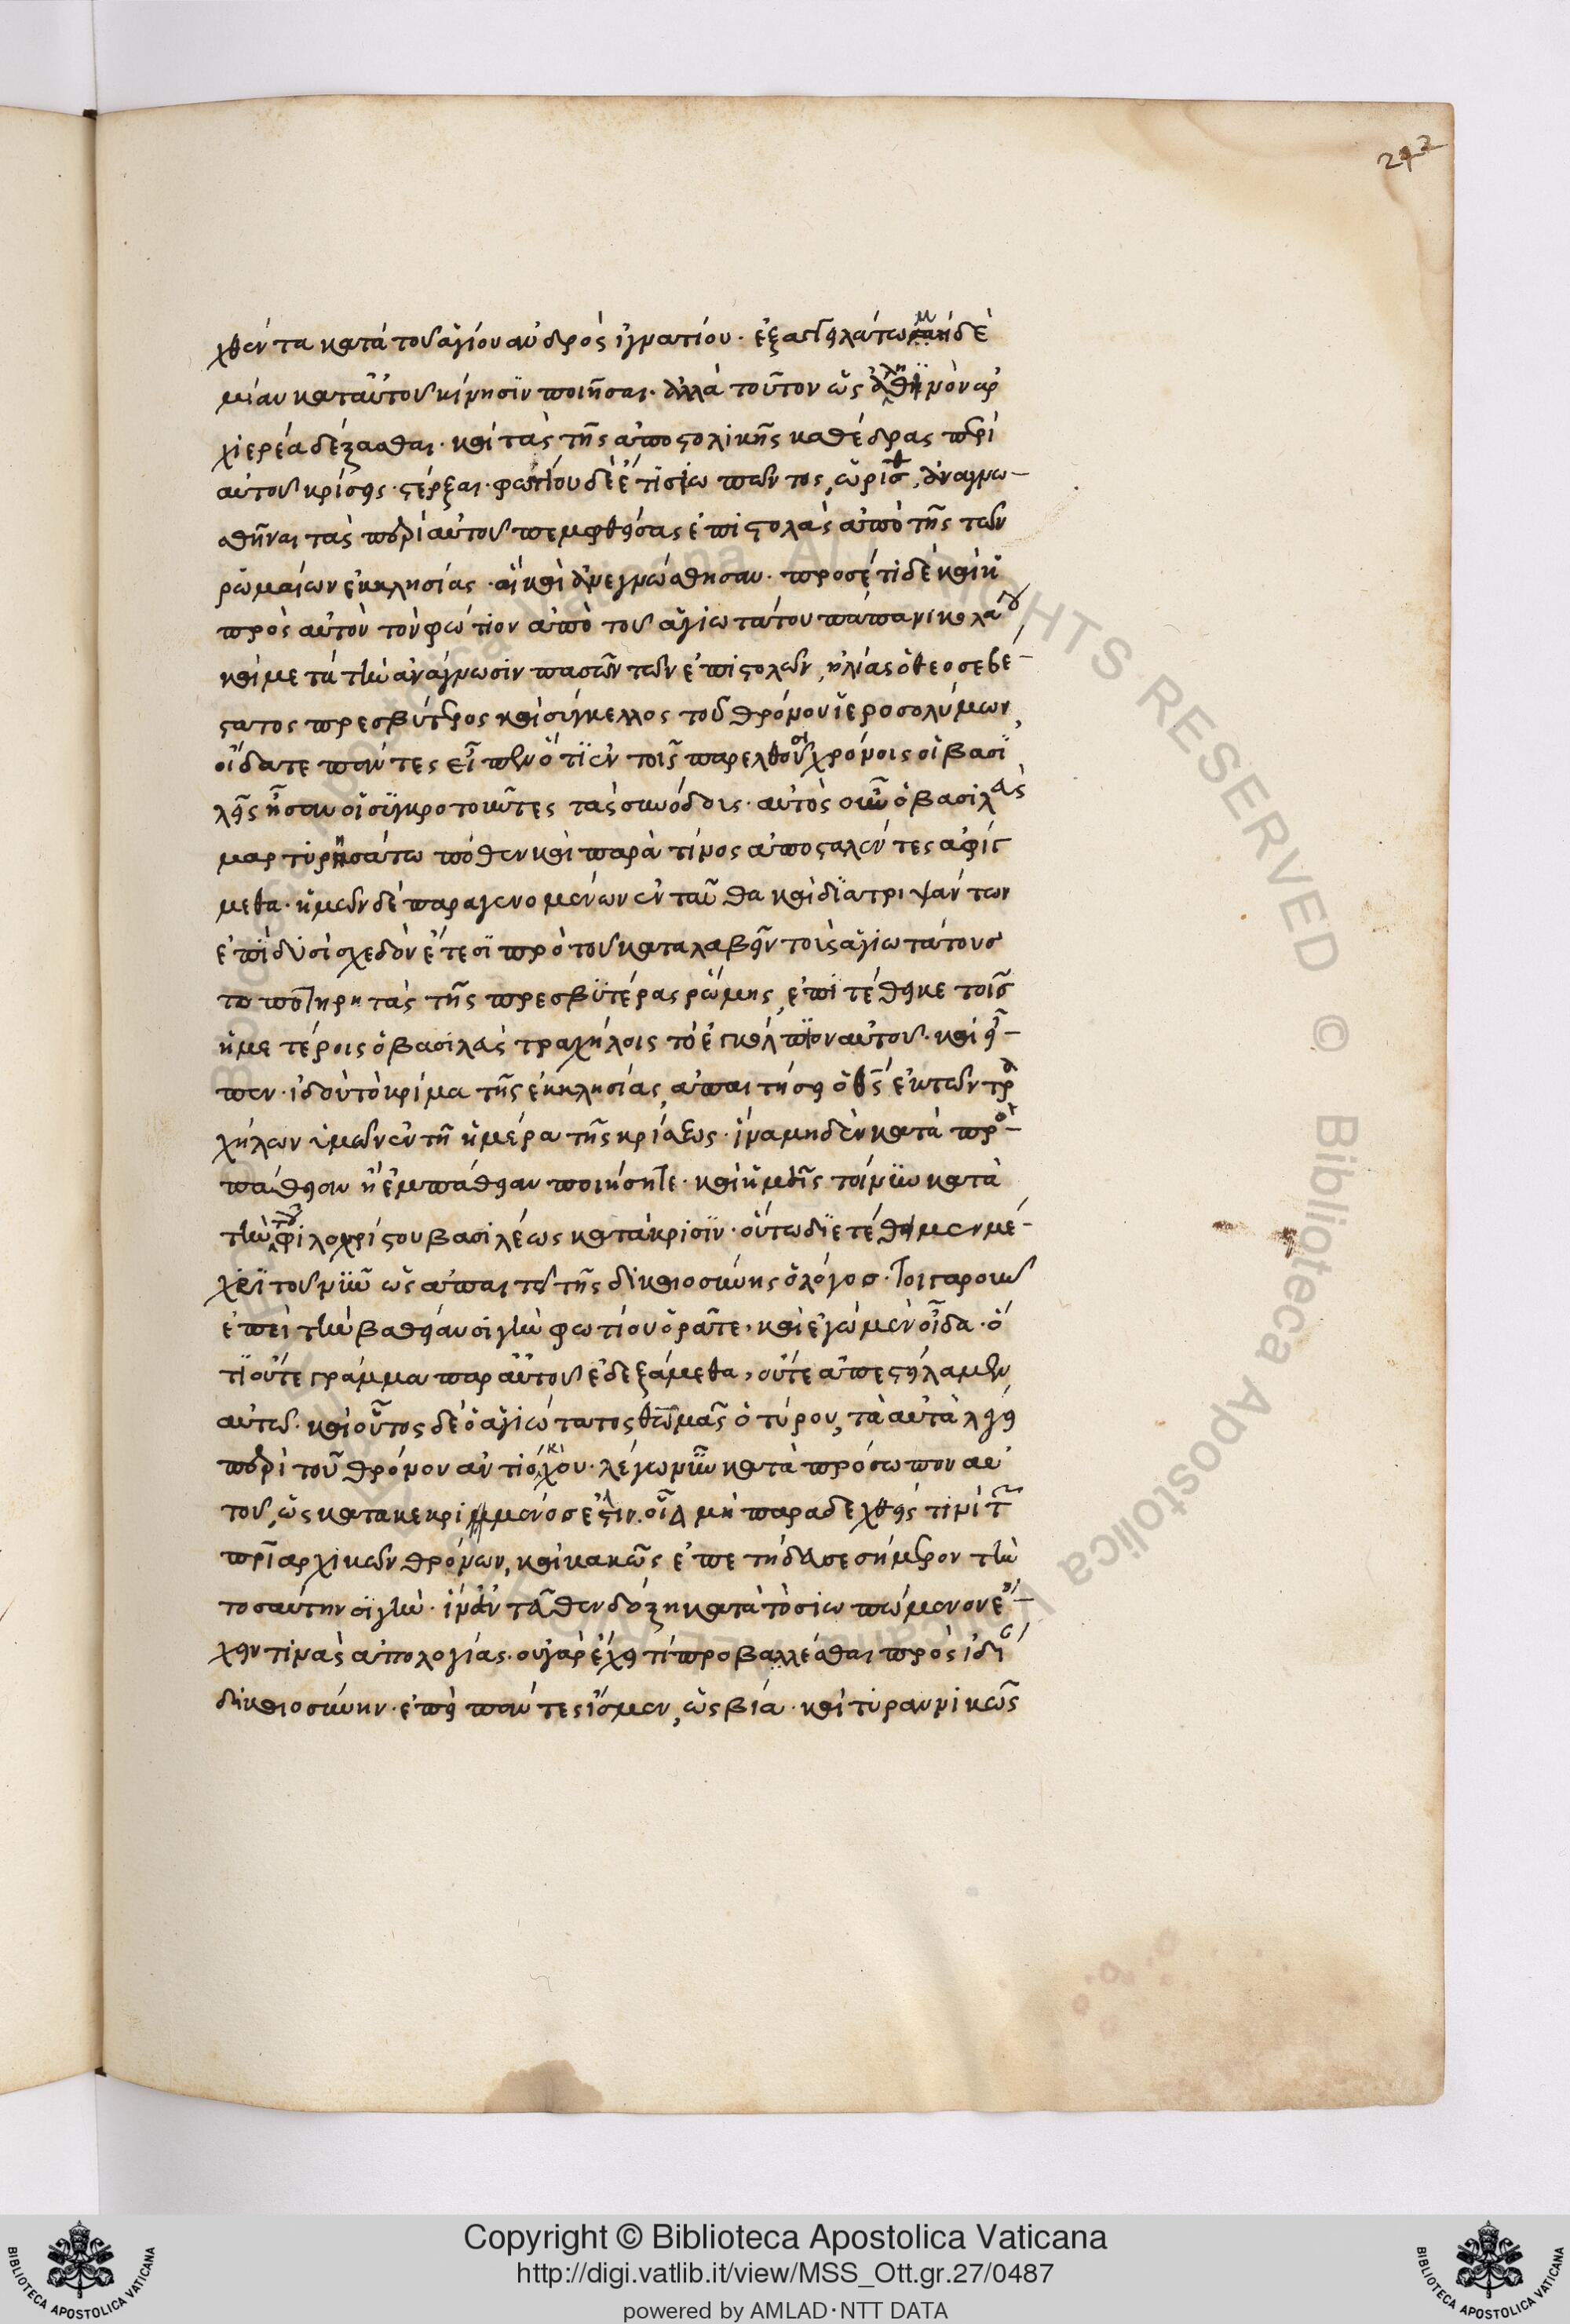 242
χθέντα κατὰ τοῦ ἁγίου ἀνδρὸς ἰγνατίου. ἐξαπεστειλάτω μηδὲ
μίαν κατ' αὐτοῦ κίνησιν ποιῆσαι. ἀλλὰ τοῦτον ὡς ἀληθινὸν ἀρ
χιερέα δέξασθαι. καὶ τὰς τῆς ἀποστολικῆς καθέδρας περὶ
αὐτοῦ κρίσεις στέρξαι. φωτίου δὲ ἔτι σιωπῶντος, ὡρίσθ, ἀναγνω
σθῆναι τὰς περὶ αὐτοῦ πεμφθείσας ἐπιστολὰς ἀπὸ τῆς τῶν
ῥωμαίων ἐκκλησίας. αἳ καὶ ἀνεγνώσθησαν. προσέτι δὲ καὶ ἡ
πρὸς αὐτὸν τὸν φώτιον ἀπὸ τοῦ ἁγιωτάτου πάπα νικολάου
καὶ μετὰ τὴν ἀνάγνωσιν πασῶν τῶν ἐπιστολῶν, ἠλίας ὁ θεοσεβέ
στατος πρεσβύτερος καὶ σύγκελλος τοῦ θρόνου ἱεροσολύμων,
οἴδατε πάντες εἶπεν ὅτι ἐν τοῖς παρελθοῦσι χρόνοις οἱ βασι
λεῖς ἦσαν οἱ συγκροτοῦντες τὰς συνόδους. αὐτὸς οὖν ὁ βασιλεὺς
μαρτυρησάτω πόθεν καὶ παρὰ τίνος ἀποσταλέντες ἀφίγ
μεθα. ἡμῶν δὲ παραγενομένων ἐνταῦθα καὶ διατριψάντων
ἐπὶ δυσὶ σχεδὸν ἔτεσι πρὸ τοῦ καταλαβεῖν τοὺς ἁγιωτάτους
τοποτηρητὰς τῆς πρεσβυτέρας ῥώμης, ἐπιτέθεικε τοῖς
ἡμετέροις ὁ βασιλεὺς τραχήλοις τὸ ἐγκόλπιον αὐτοῦ. καὶ εἶ
πεν. ἰδοὺ τὸ κρίμα τῆς ἐκκλησίας, ἀπαιτήσει ὁ θς ἐκ τῶν τρα
χήλων ὑμῶν ἐν τῇ ἡμέρα τῆς κρίσεως. ἵνα μηδὲν κατὰ προσ
πάθειαν ἢ ἐμπάθειαν ποιήσητε. καὶ ἡμεῖς τοίνυν κατὰ
τὴν τοῦ φιλοχρίστου βασιλέως κατάκρισιν. οὕτω διετέθημεν μέ
χρι τοῦ νῦν ὡς ἀπαιτεῖ τῆς δικαιοσύνης ὁ λόγος. τοιγαροῦν
ἐπεὶ τὴν βαθεῖαν σιγὴν φωτίου ὁρᾶτε, καὶ ἐγὼ μὲν οἶδα. ὅ
τι οὔτε γράμμα παρ' αὐτοῦ ἐδεξάμεθα, οὔτε ἀπεστείλαμεν
αὐτῶ. καὶ οὗτος δὲ ὁ ἁγιώτατος θωμᾶς ὁ τύρου, τὰ αὐτὰ λέγει
περὶ τοῦ θρόνου ἀντιοχικοῦ. λέγω νῦν κατὰ πρόσωπον αὐ
τοῦ, ὡς κατακεκριμμένος ἐστίν. οἷα μὴ παραδεχθεὶς τινὶ τῶν
πριαρχικῶν θρόνων, καὶ κακῶς ἐπετήδευσε σήμερον τὴν
τοσαύτην σιγὴν. ἵν' ἐντεῦθεν δόξη κατὰ τὸ σιωπώμενον ἔ
χειν τινὰς ἀπολογίας. οὐ γὰρ ἔχει τί προβαλλέσθαι πρὸς ἰδί
δικαιοσύνην. ἐπεὶ πάντες ἴσμεν, ὡς βία. καὶ τυραννικῶς
Copyright © Biblioteca Apostolica Vaticana
http://digi.vatlib.it/view/MSS_Ott.gr.27/0487
powered by AMLAD·NTT DATA